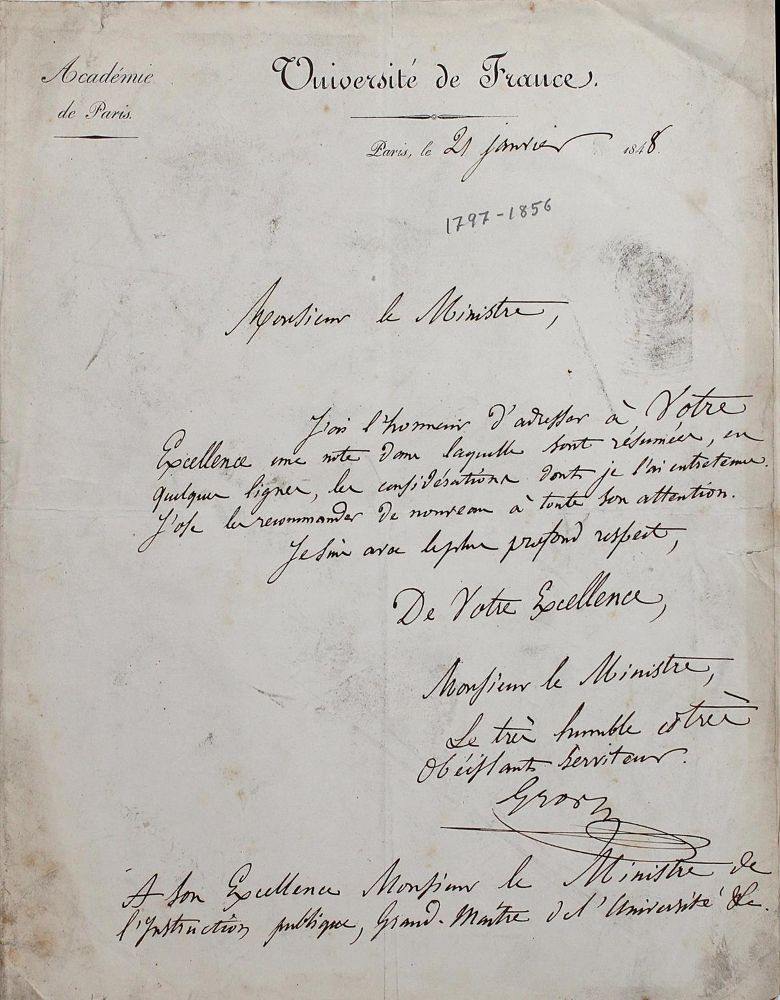 Académie
de Paris.
Université de France.
Paris, le 21 janvier 1848.
1797-1856
Monsieur le Ministre,
J'ai l'honneur d'adresser à Votre
Excellence une note dans laquelle sont résumées, en
quelques lignes, les considérations dont je l'ai entretenue.
J'ose les recommander de nouveau à toute son attention.
Je suis avec le plus profond respect,
De Votre Excellence,
Monsieur le Ministre,
Le très humble et très
Obéissant Serviteur.
A Son Excellence Monsieur le Ministre de
l'Instruction publique, Grand-Maître de l'Université &c.